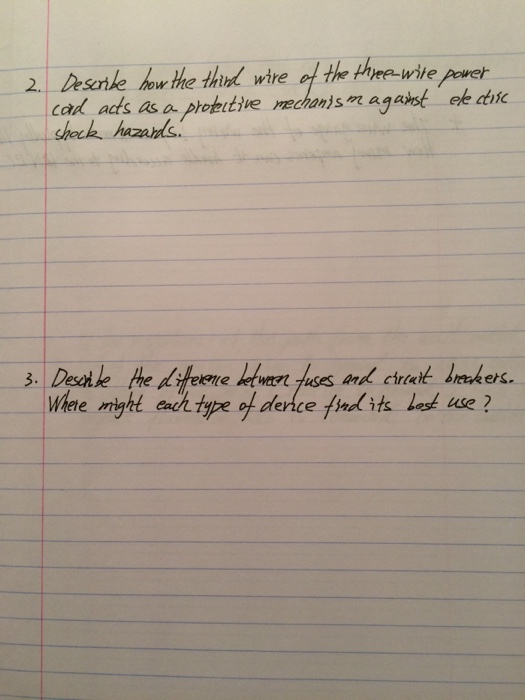 2. Describe how the third wire of the three-wire power
cord acts as a protective mechanism against electric
shock hazards.
3. Describe the difference between fuses and circuit breakers.
Where might each type of device find its best use?